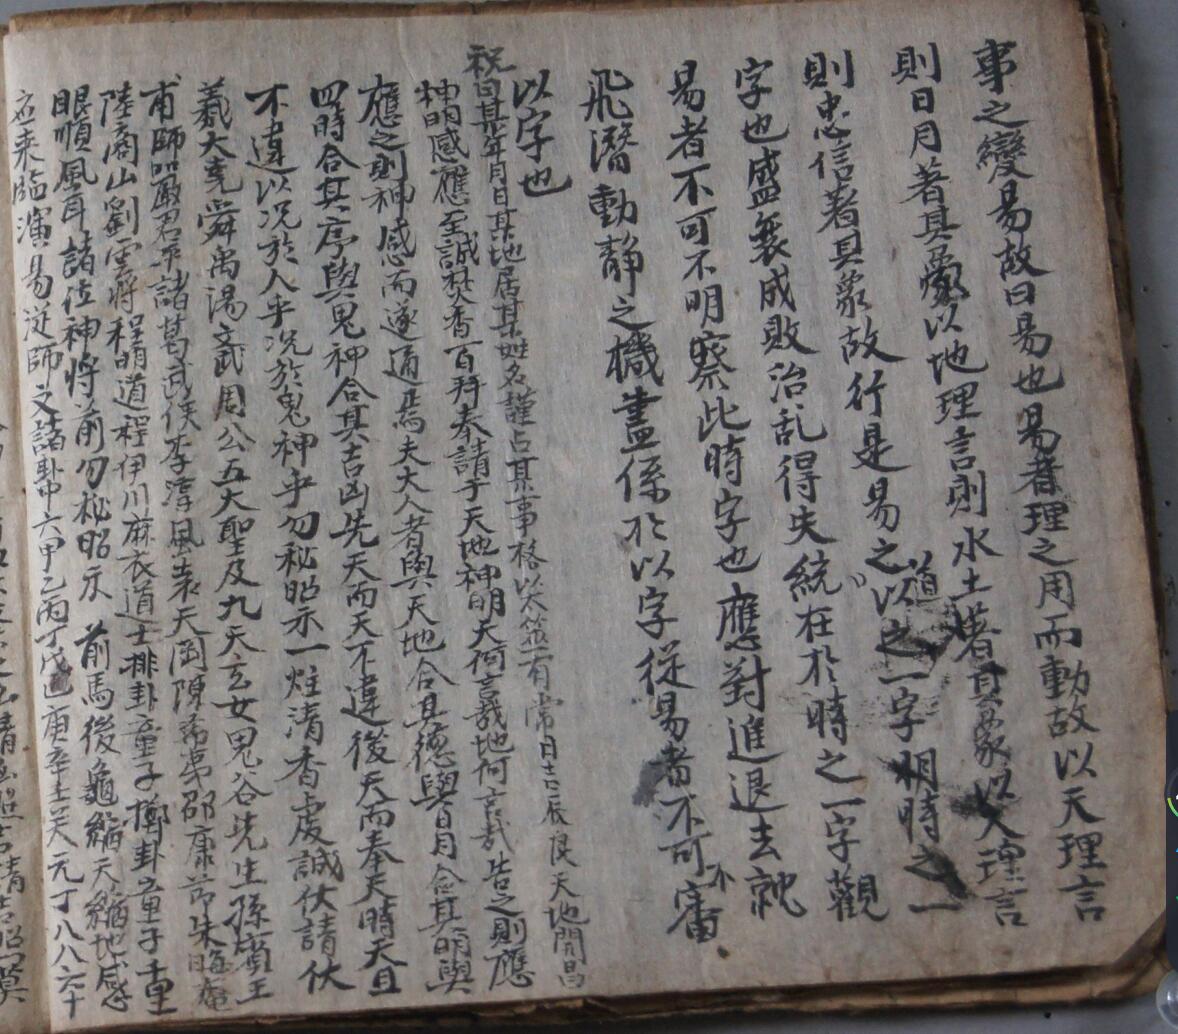 事之變易故曰易也易者理之用而動故以天理言
則日月著其象以地理言則水土著其象以人理言
則忠信著其象故行是易之道以之一字明時之一
字也盛衰成敗治乱得失統在於時之一字觀
易者不可不明察此時字也應對進退去就
飛潛動静之機盡係於以字從易者不可不審
以字也
祝曰某年月日某地居某姓名謹占某事格以太筮有常日吉辰良天地開昌
神明感應至誠焚香百拜奉請于天地神明天何言哉地何言哉告之則應
應之則神感而遂通焉夫大人者與天地合其德與日月合其明與
四時合其序與鬼神合其吉凶先天而天不違後天而奉天時天且
不違以況於人乎況於鬼神乎勿秘昭示一炷清香虔誠伏請伏
羲大堯舜禹湯文武周公五大聖及九天玄女鬼谷先生孫臏王
甫師嚴君平諸葛武侯李淳風袁天罡陳希夷邵康節朱晦庵
陸商山劉雲將程明道程伊川麻衣道士排卦童子擲卦童子千里
眼順風耳諸位神將前勿秘昭示 前馬後龜 天 地 感
召来臨演易逆師文諸卦中六甲乙丙丁戊己庚辛壬癸元丁八八六十